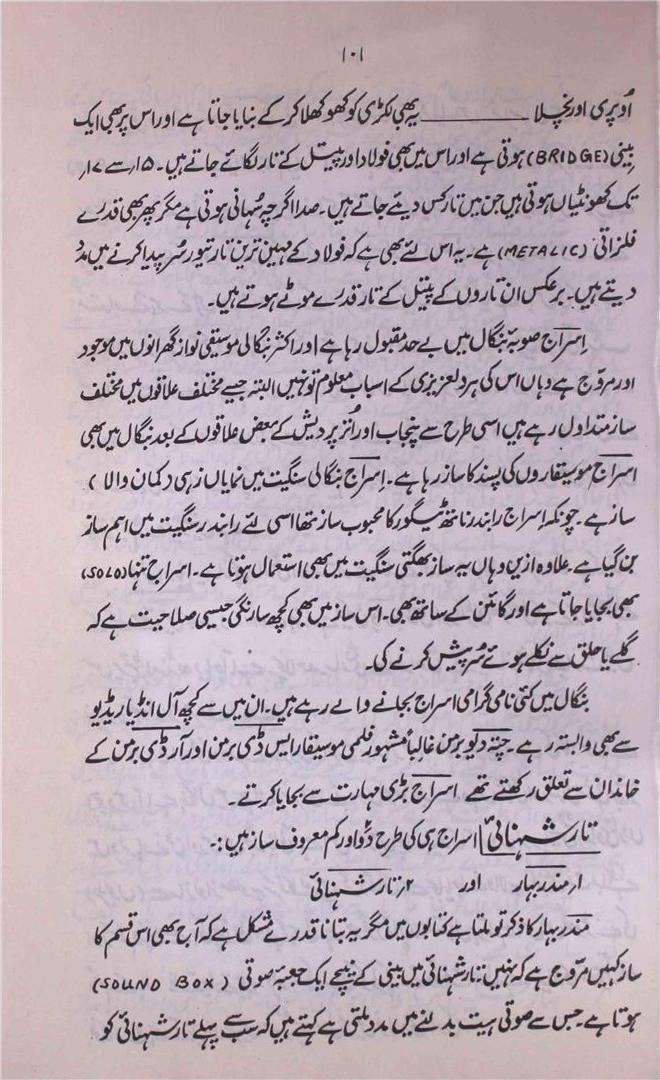 ۱۰۱
اُوپری اور نچلا ـــــــــــ یہ بھی لکڑی کو کھوکھلا کر کے بنایا جاتا ہے اور اس پر بھی ایک
بینی (BRIDGE) ہوتی ہے اور اس میں بھی فولاد اور پیتل کے تار لگائے جاتے ہیں۔ ۱۵؍ سے ۱۷؍
تک کھونٹیاں ہوتی ہیں جن میں تار کس دیئے جاتے ہیں۔ صدا اگرچہ سُہانی ہوتی ہے مگر پھر بھی قدرے
فلزاتی (METALIC) ہے۔ یہ اس لئے بھی ہے کہ فولاد کے مہین ترین تار تیور سُر پیدا کرنے میں مدد
دیتے ہیں۔ برعکس ان تاروں کے پیتل کے تار قدرے موٹے ہوتے ہیں۔
اِسراج صوبۂ بنگال میں بے حد مقبول رہا ہے اور اکثر بنگالی موسیقی نواز گھرانوں میں موجود
اور مروّج ہے وہاں اس کی ہردلعزیزی کے اسباب معلوم تو نہیں البتہ جیسے مختلف علاقوں میں مختلف
ساز متداول رہے ہیں اسی طرح سے پنجاب اور اُتر پردیش کے بعض علاقوں کے بعد بنگال میں بھی
اسراج موسیقاروں کی پسند کا ساز رہا ہے۔ اِسراج بنگالی سنگیت میں نمایاں زہی (کمان والا)
ساز ہے۔ چونکہ اِسراج رابندر ناتھ ٹیگور کا محبوب ساز تھا اسی لئے رابندر سنگیت میں اہم ساز
بن گیا ہے۔ علاوہ ازیں وہاں یہ ساز بھگتی سنگیت میں بھی استعمال ہوتا ہے۔ اسراج تنہا (SOLO)
بھی بجایا جاتا ہے اور گائن کے ساتھ بھی۔ اس ساز میں بھی کچھ سارنگی جیسی صلاحیت ہے کہ
گلے یا حلق سے نکلے ہوئے سُر پیش کرنے کی۔
بنگال میں کئی نامی گرامی اسراج بجانے والے رہے ہیں۔ ان میں سے کچھ آل انڈیا ریڈیو
سے بھی وابستہ رہے۔ دیو برمن غالباً مشہور فلمی موسیقار ایس ڈی برمن اور آر ڈی برمن کے
خاندان سے تعلق رکھتے تھے اسراج بڑی مہارت سے بجایا کرتے۔
تار شہنائی اسراج ہی کی طرح دو اور کم معروف ساز ہیں:۔
۱؍ مندر بہار اور ۲؍ تار شہنائی
مندر بہار کا ذکر تو ملتا ہے کتابوں میں مگر یہ بتانا قدرے مشکل ہے کہ آج بھی اس قسم کا
ساز کہیں مروّج ہے کہ نہیں: تار شہنائی میں بینی کے نیچے ایک جعبۂ صوتی (SOUND BOX)
ہوتا ہے۔ جس سے صوتی ہیت بدلنے میں مدد ملتی ہے کہتے ہیں کہ سب سے پہلے تار شہنائی کو